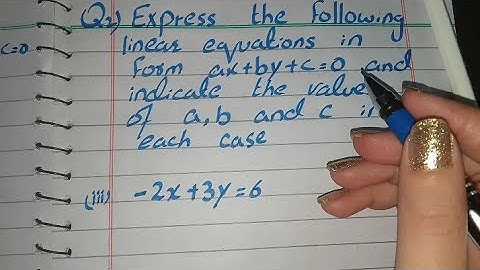 Q2) Express the following
c=0 linear equations in
form ax+by+c=0 and
indicate the value
of a, b and c in
each case
(iii) -2x+3y=6